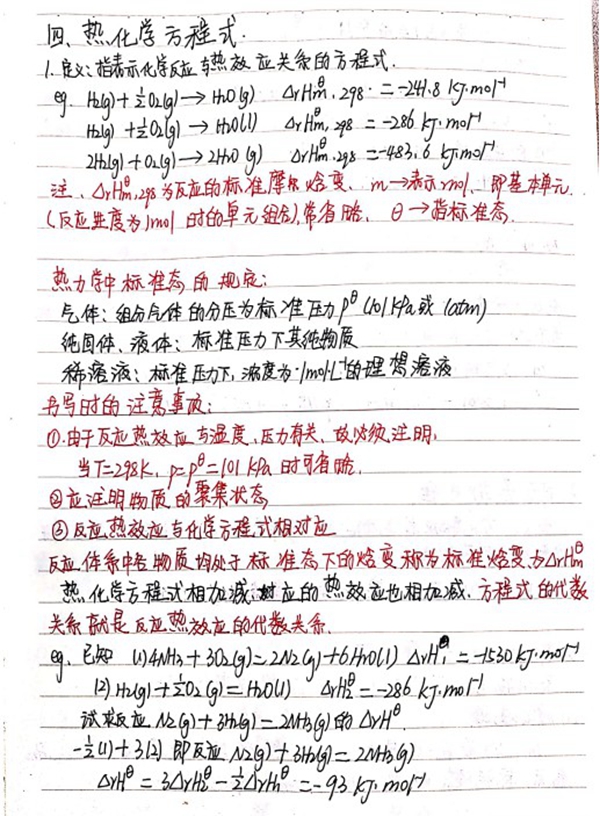 四、热化学方程式.
1. 定义:指表示化学反应与热效应关系的方程式.
eg. H₂(g)+½O₂(g)→H₂O(g) ΔrHm,298^θ=-241.8 kJ·mol⁻¹
H₂(g)+½O₂(g)→H₂O(l) ΔrHm,298^θ=-286 kJ·mol⁻¹
2H₂(g)+O₂(g)→2H₂O(g) ΔrHm,298^θ=-483.6 kJ·mol⁻¹
注、ΔrHm,298^θ为反应的标准摩尔焓变、m→表示mol、即基本单元.
(反应进度为1mol时的单元组合),常省略、θ→指标准态.
热力学中标准态的规定:
气体:组分气体的分压为标准压力p^θ(101kPa或1atm)
纯固体、液体:标准压力下其纯物质
稀溶液:标准压力下,浓度为1mol·L⁻¹的理想溶液
书写时的注意事项:
①.由于反应热效应与温度、压力有关、故必须注明,
当T=298K、p=p^θ=101kPa时可省略.
②应注明物质的聚集状态
③反应热效应与化学方程式相对应
反应体系中各物质均处于标准态下的焓变称为标准焓变,为ΔrHm^θ
热化学方程式相加减,对应的热效应也相加减.方程式的代数
关系就是反应热效应的代数关系.
eg、已知 (1)4NH₃+3O₂(g)=2N₂(g)+6H₂O(l) ΔrH₁^θ=-1530kJ·mol⁻¹
(2)H₂(g)+½O₂(g)=H₂O(l) ΔrH₂^θ=-286 kJ·mol⁻¹
试求反应N₂(g)+3H₂(g)=2NH₃(g)的ΔrH^θ.
-½(1)+3(2) 即反应N₂(g)+3H₂(g)=2NH₃(g)
ΔrH^θ=3ΔrH₂^θ-½ΔrH₁^θ=-93 kJ·mol⁻¹